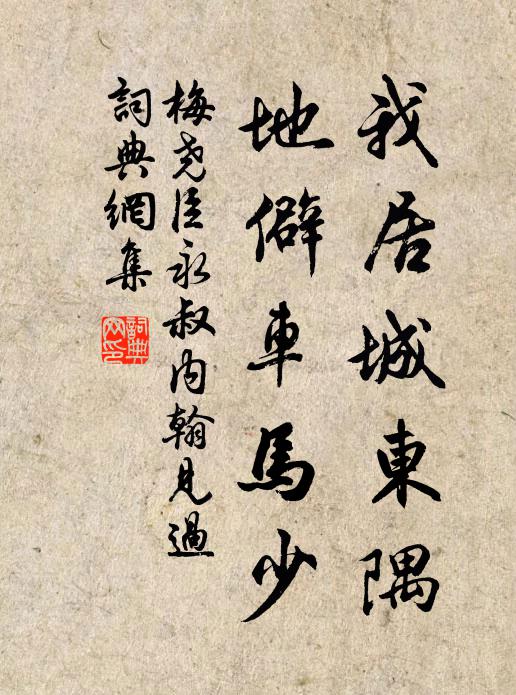 我居城東隅
地僻車馬少
梅尧臣永叔内翰見過
詞典網集
詞典网印